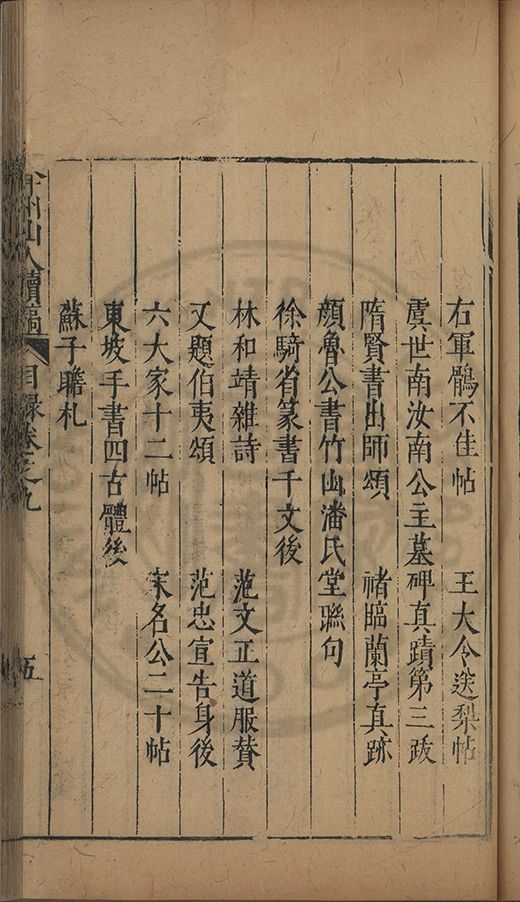 右軍鶻不佳帖　王大令送梨帖
虞世南汝南公主墓碑真蹟第三跋
隋賢書出師頌　褚臨蘭亭真跡
顏魯公書竹山潘氏堂聯句
徐騎省篆書千文後
林和靖雜詩　范文正道服賛
又題伯夷頌　范忠宣告身後
六大家十二帖　宋名公二十帖
東坡手書四古體後
蘇子瞻札
弇州山人續稿　目錄卷之九　五